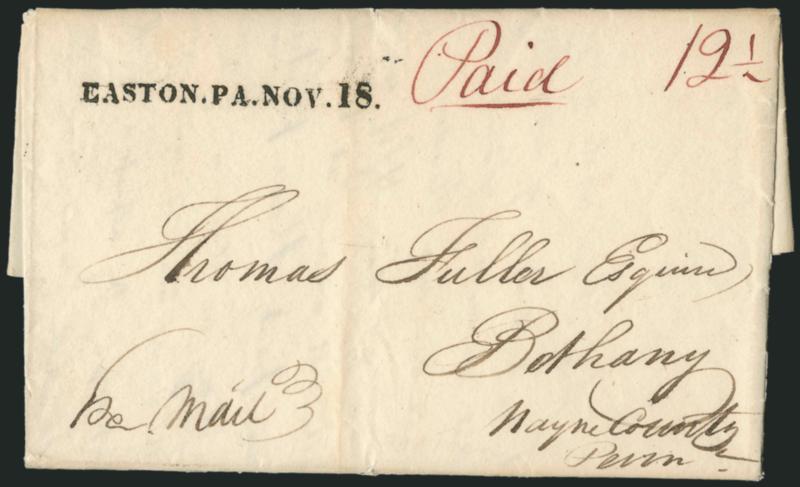 EASTON.PA.NOV.18. Paid 12½
Thomas Fuller Esquire
Bethany
Wayne County
Penn
Per Mail